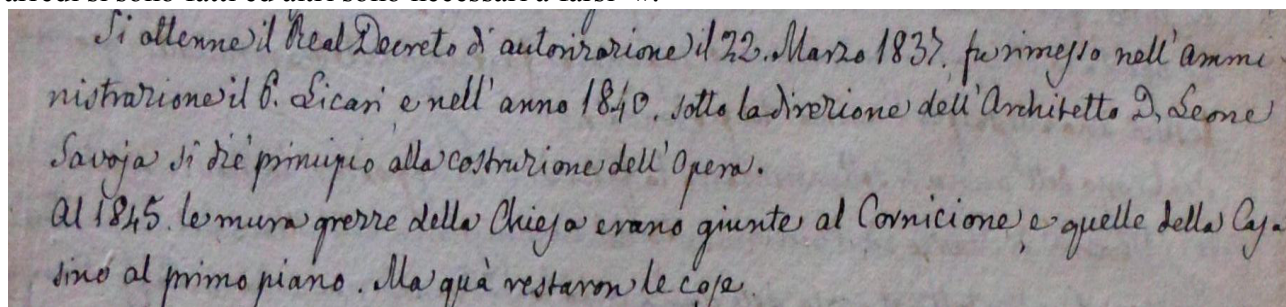 Si ottenne il Real Decreto d'autorizazione il 22. Marzo 1837. fu rimesso nell'ammi
nistrazione il P. Licari e nell'anno 1840. sotto la direzione dell'Architetto D. Leone
Savoja si diè principio alla costruzione dell'Opera.
Al 1845. le mura grezze della Chiesa erano giunte al Cornicione, e quelle della Casa
sino al primo piano. Ma quà restaron le cose.